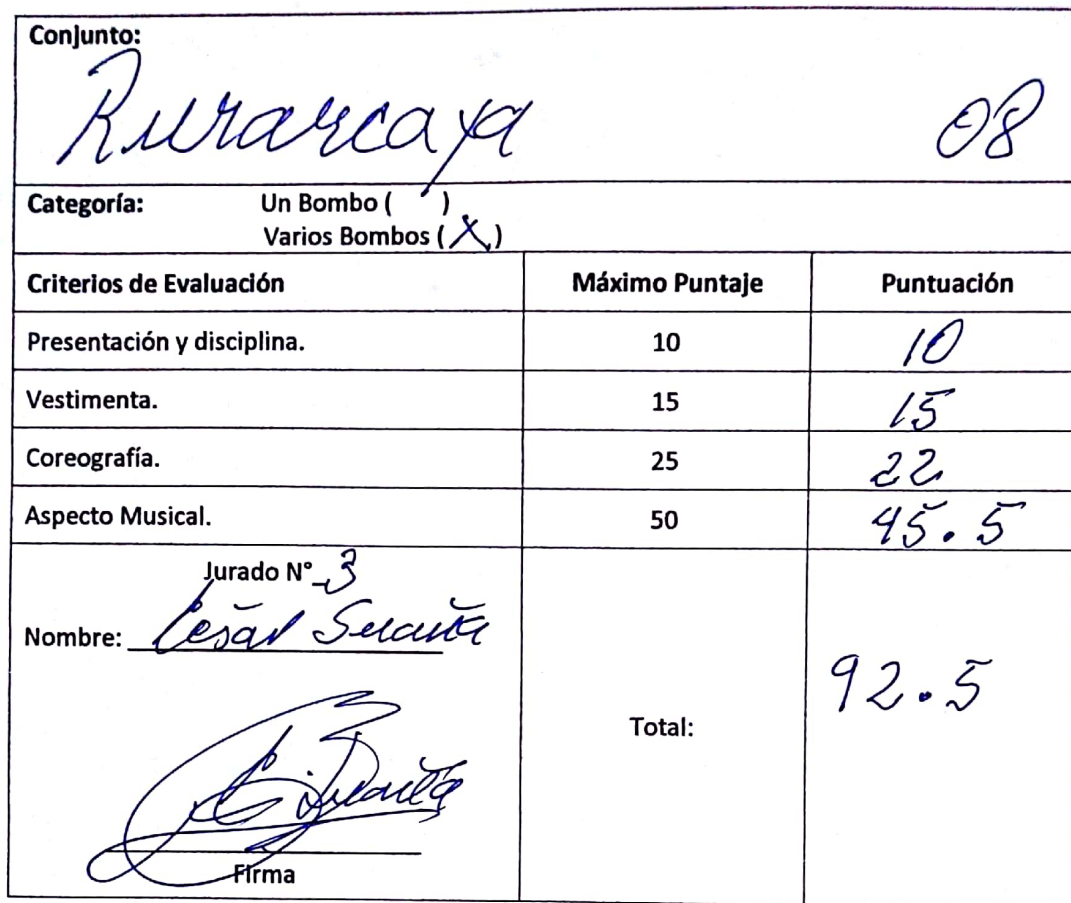 Conjunto:
Rurarcaya 08
Categoría: Un Bombo ( )
Varios Bombos ( X )
Criterios de Evaluación Máximo Puntaje Puntuación
Presentación y disciplina. 10 10
Vestimenta. 15 15
Coreografía. 25 22
Aspecto Musical. 50 45.5
Jurado N° 3
Nombre: César
Total: 92.5
Firma